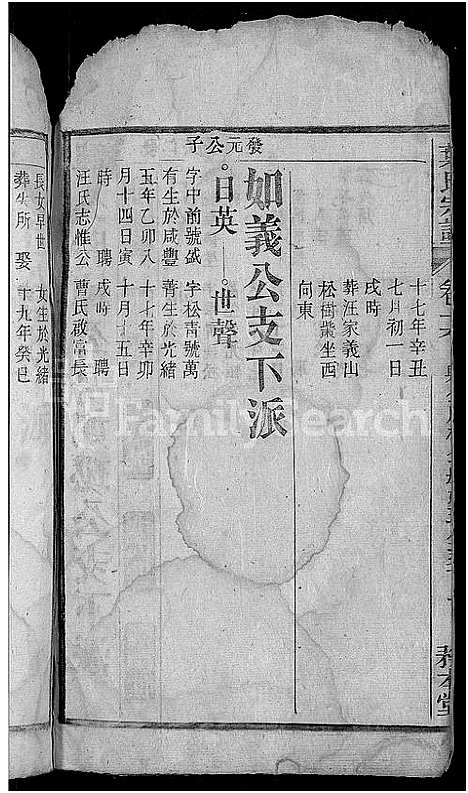 十七年辛丑
七月初一日
戌時
葬汪家義山
松樹業坐西
向東
如義公支下派
發元公子
日英 世聲
字中前號盛 字松青號萬
有生於咸豐 菁生於光緒
五年乙卯八 十七年辛卯
月十四日寅 十月十五日
時 聘 戌時 聘
汪氏志惟公 曹氏啟富長
長女早世 女生於光緒
葬失所 娶 十九年癸巳
務本堂
FamilySearch